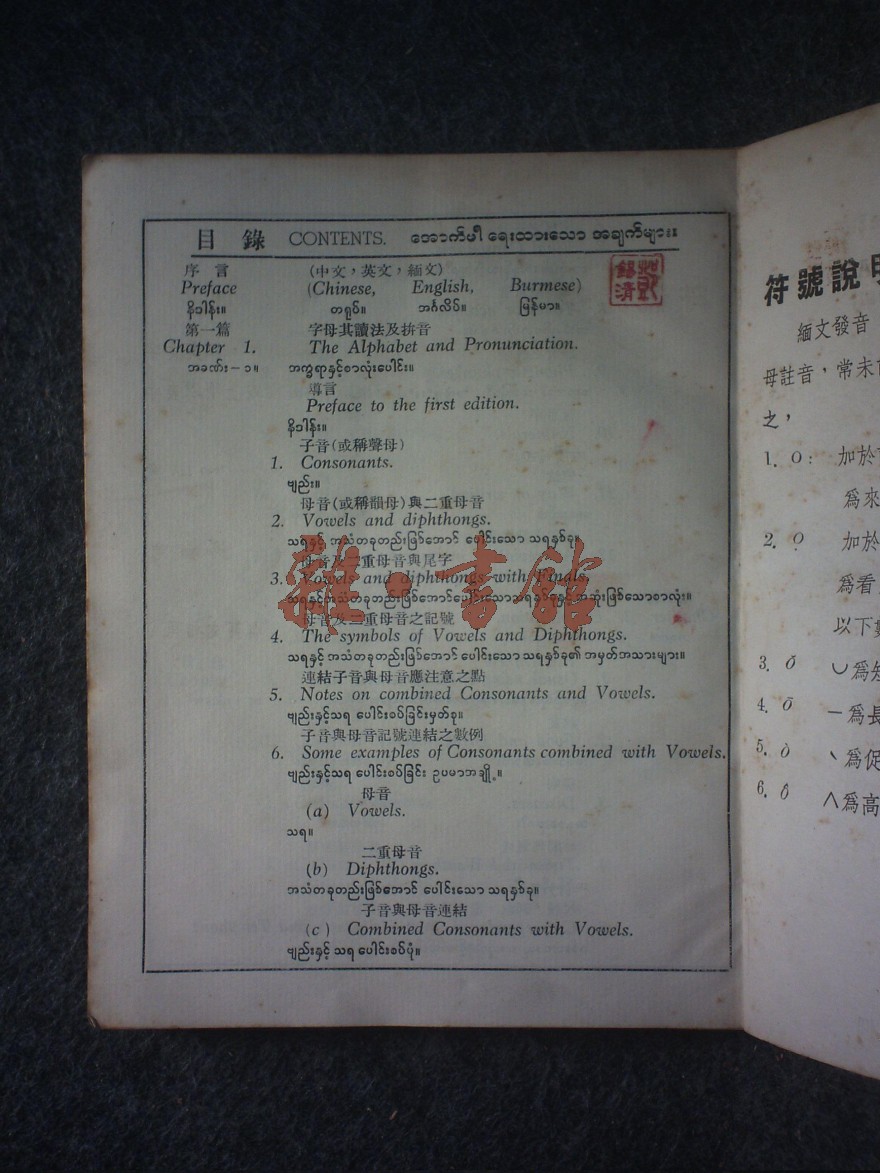 目錄 CONTENTS. အောက်ပါ ရေးထားသော အချက်များး
序言 (中文，英文，緬文)
Preface (Chinese, English, Burmese)
နိဒါန်း။ တရုပ်။ အင်္ဂလိပ်။ မြန်မာ။
第一篇 字母其讀法及拚音
Chapter 1. The Alphabet and Pronunciation.
အခဏ်း–၁။ အက္ခရာနှင့်စာလုံးပေါင်း။
導言
Preface to the first edition.
နိဒါန်း။
子音(或稱聲母)
1. Consonants.
ဗျည်း။
母音(或稱韻母)與二重母音
2. Vowels and diphthongs.
သရနှင့် အသံတခုတည်းဖြစ်အောင် ပေါင်းသော သရနှစ်ခု။
母音及二重母音與尾字
3. Vowels and diphthongs with Finals.
သရနှင့်အသံတခုတည်းဖြစ်အောင်ပေါင်းသောသရနှစ်ခုနှင့်အဆုံးဖြစ်သောစာလုံး။
母音及二重母音之記號
4. The symbols of Vowels and Diphthongs.
သရနှင့် အသံတခုတည်းဖြစ်အောင် ပေါင်းသော သရနှစ်ခု၏ အမှတ်အသားများ။
連結子音與母音應注意之點
5. Notes on combined Consonants and Vowels.
ဗျည်းနှင့်သရ ပေါင်းစပ်ခြင်းမှတ်စု။
子音與母音記號連結之數例
6. Some examples of Consonants combined with Vowels.
ဗျည်းနှင့်သရ ပေါင်းစပ်ခြင်း ဥပမာအချို့။
母音
(a) Vowels.
သရ။
二重母音
(b) Diphthongs.
အသံတခုတည်းဖြစ်အောင် ပေါင်းသော သရနှစ်ခု။
子音與母音連結
(c) Combined Consonants with Vowels.
ဗျည်းနှင့် သရ ပေါင်းစပ်ပုံ။
雜·書館
符號說明
緬文發音
母註音，常未
之，
1. O: 加於
為來
2. O 加於
為看
以下數
3. ŏ ∪為短
4. ō –為長
5. ò ヽ為促
6. ô ∧為高